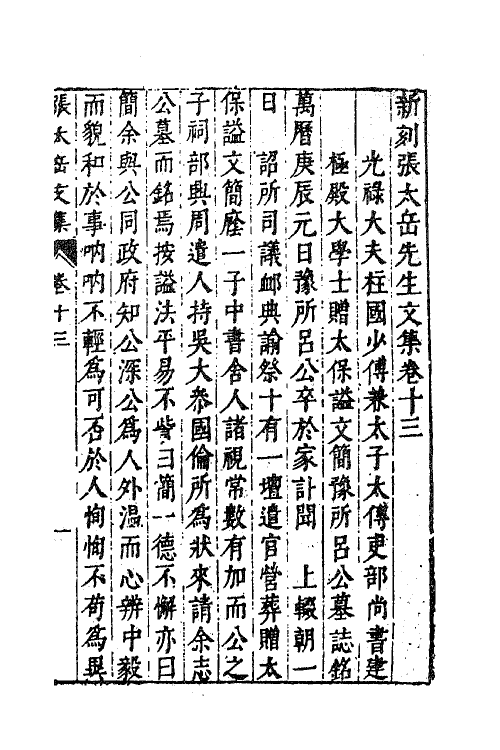 新刻張太岳先生文集卷十三
光祿大夫柱國少傅兼太子太傅吏部尚書建
極殿大學士贈太保謚文簡豫所呂公墓誌銘
萬曆庚辰元日豫所呂公卒於家訃聞 上輟朝一
日 詔所司議卹典諭祭十有一壇遣官營葬贈太
保謚文簡廕一子中書舍人諸視常數有加而公之
子祠部興周遣人持吳大叅國倫所為狀來請余志
公墓而銘焉按謚法平易不訾曰簡一德不懈亦曰
簡余與公同政府知公深公為人外溫而心辨中毅
而貌和於事吶吶不輕為可否於人恂恂不苟為異
張太岳文集 卷十三 一